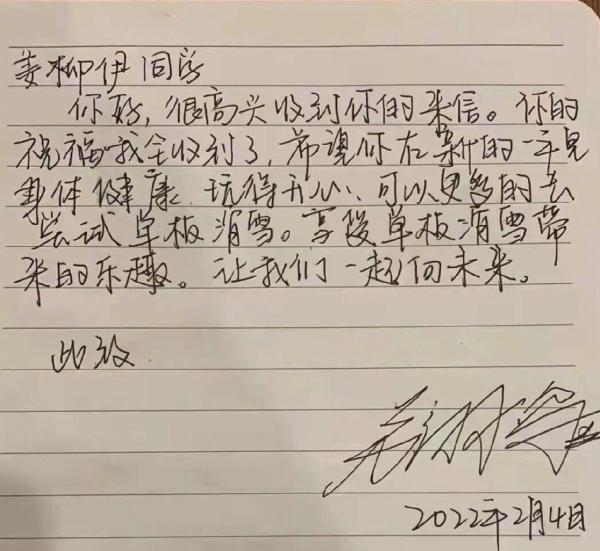 姜柳伊同学
你好，很高兴收到你的来信。你的
祝福我全收到了，希望你在新的一年里
身体健康，玩得开心，可以更多的去
尝试单板滑雪。享受单板滑雪带
来的乐趣。让我们一起向未来。
此致
2022年2月4日